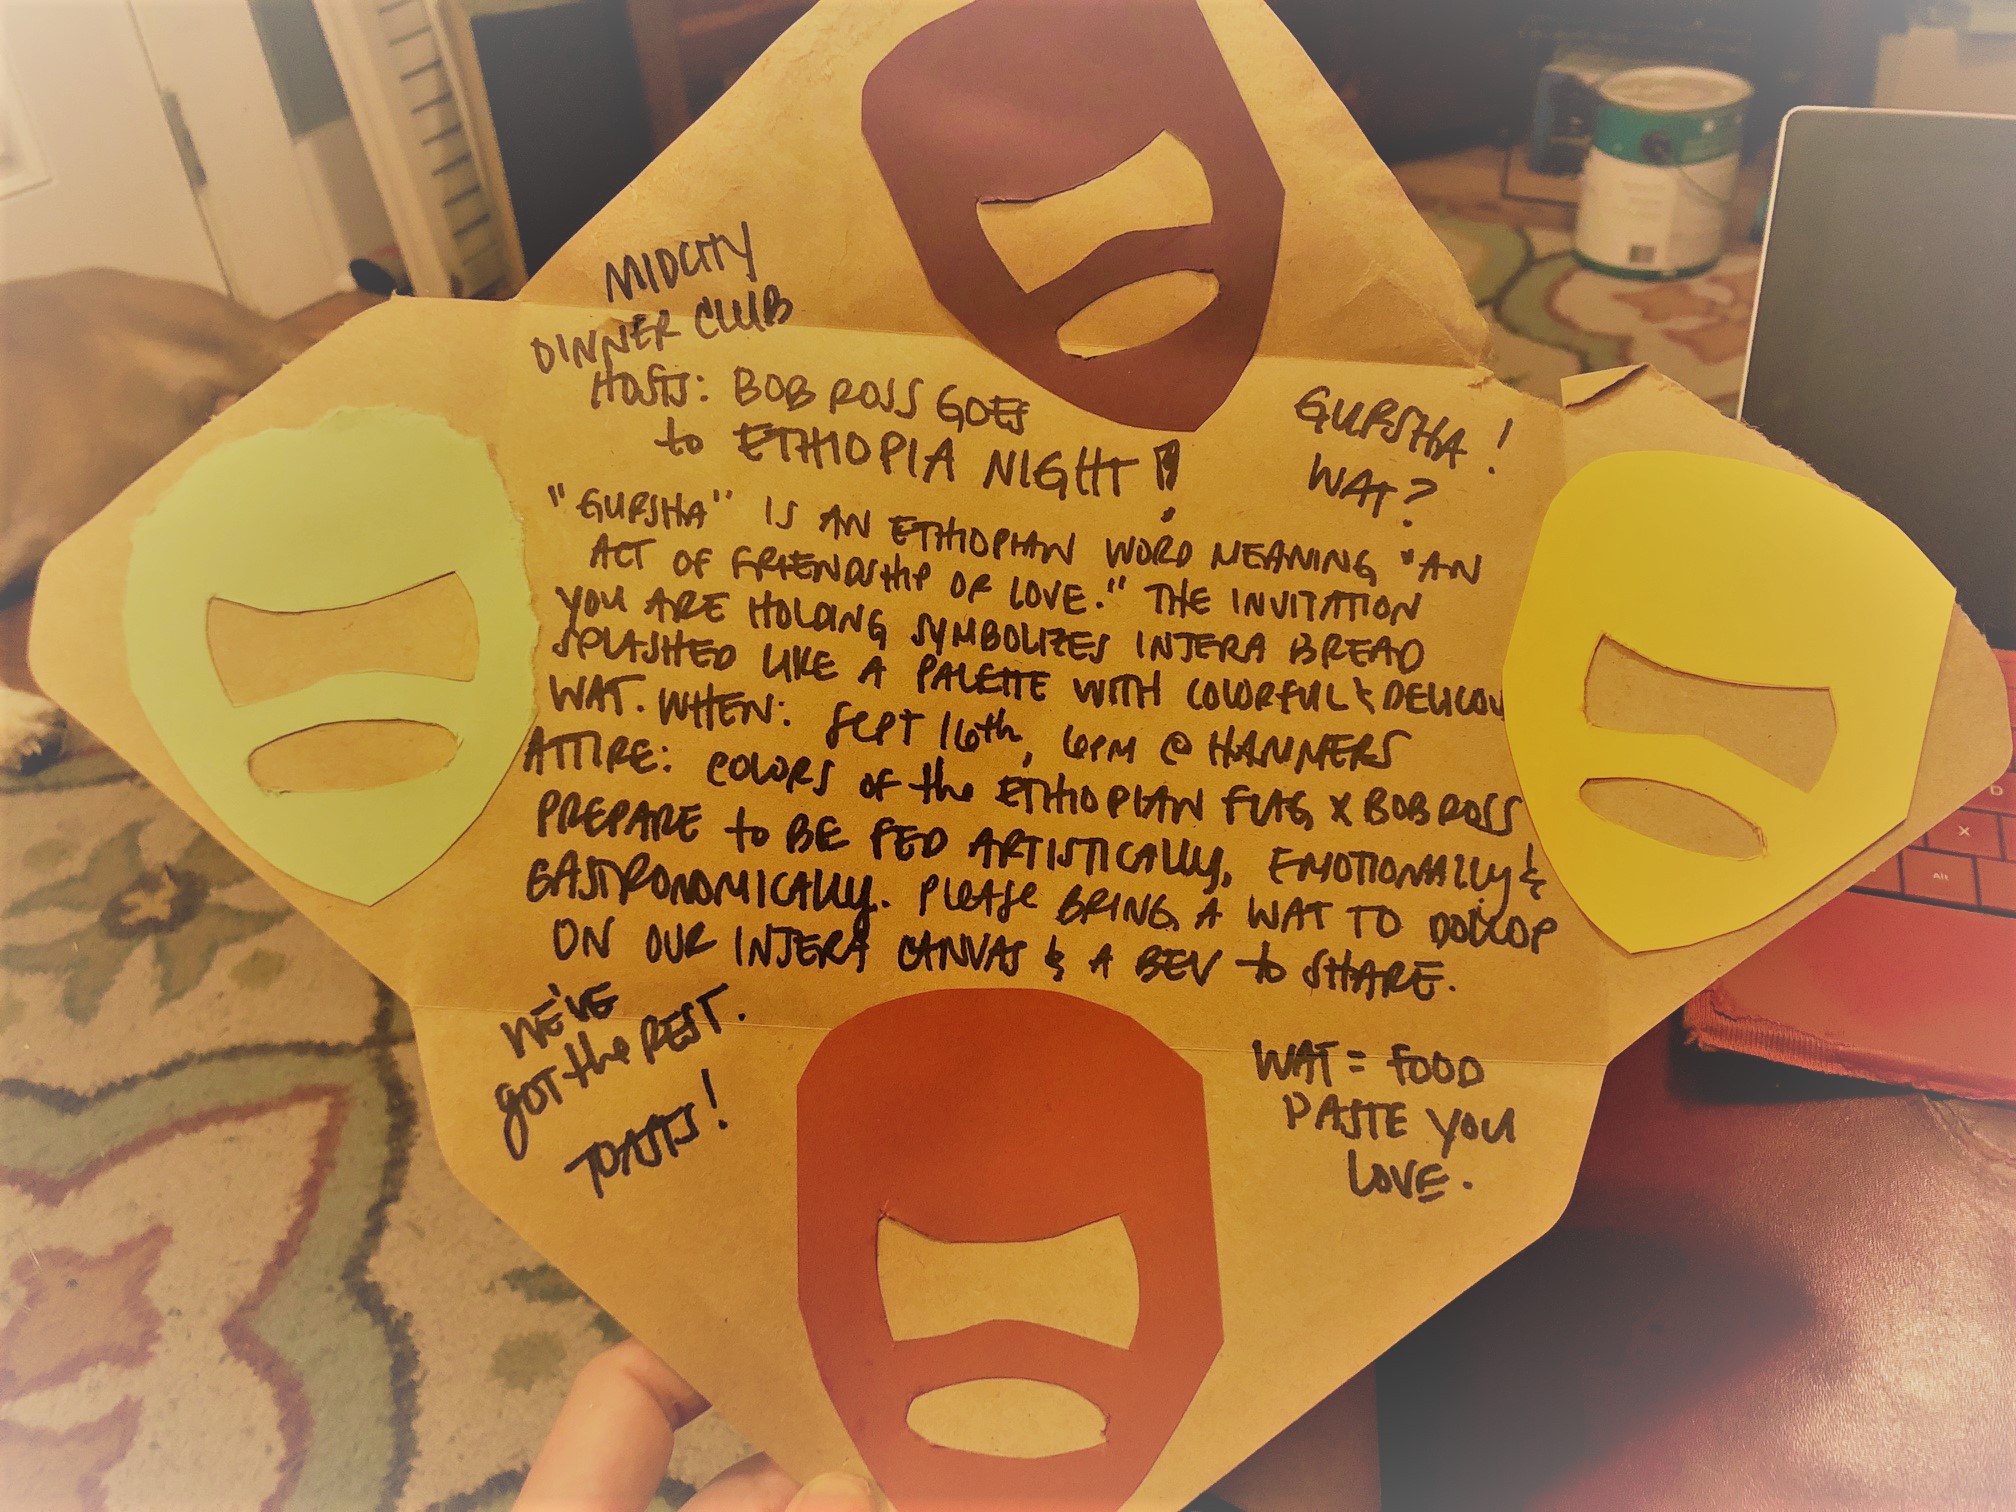 MIDCITY
DINNER CLUB
HOSTS: BOB ROSS GOES
to ETHIOPIA NIGHT!
GURSHA!
WAT?
"GURSHA" IS AN ETHIOPIAN WORD MEANING "AN
ACT OF FRIENDSHIP OR LOVE." THE INVITATION
YOU ARE HOLDING SYMBOLIZES INJERA BREAD
SPLASHED LIKE A PALETTE WITH COLORFUL & DELICOU
WAT. WHEN: SEPT 16th, 6PM @ HANNERS
ATTIRE: COLORS OF the ETHIOPIAN FLAG X BOB ROSS
PREPARE to BE FED ARTISTICALLY, EMOTIONALLY &
GASTRONOMICALLY. PLEASE BRING A WAT TO DOLLOP
ON OUR INJERA CANVAS & A BEV to SHARE.
WE'VE
GOT the REST.
TOASTS!
WAT = FOOD
PASTE YOU
LOVE.
X
Alt